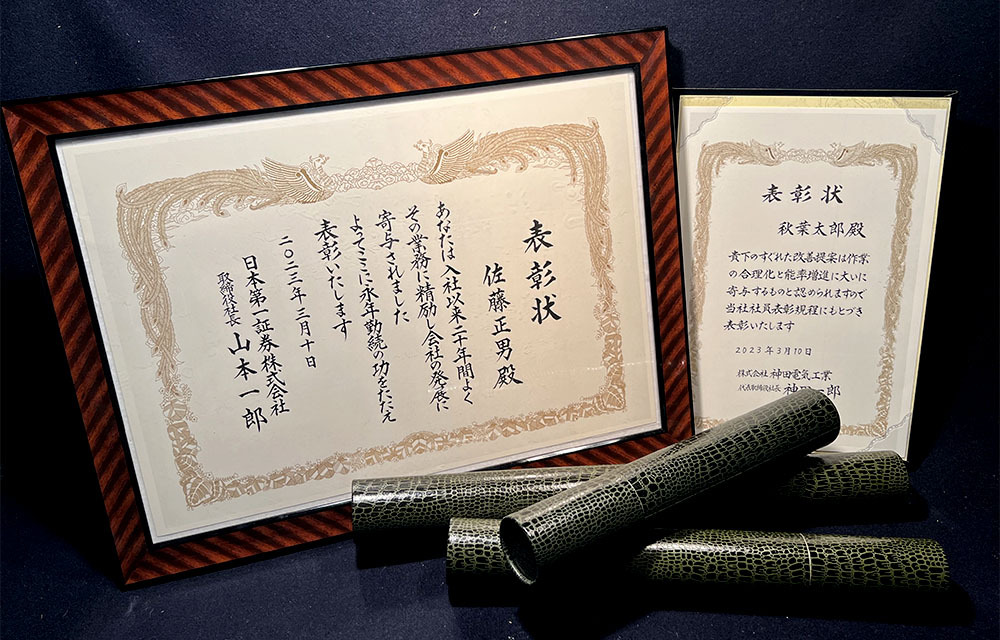 表彰状
佐藤正男殿
あなたは入社以来二十年間よく
その業務に精励し会社の発展に
寄与されました
よってここに永年勤続の功をたたえ
表彰いたします
二〇二三年三月十日
日本第一証券株式会社
取締役社長 山本一郎
表彰状
秋葉太郎殿
貴下のすぐれた改善提案は作業
の合理化と能率増進に大いに
寄与するものと認められますので
当社社員表彰規程にもとづき
表彰いたします
2023年3月10日
株式会社 神田電気工業
代表取締役社長 神田一郎